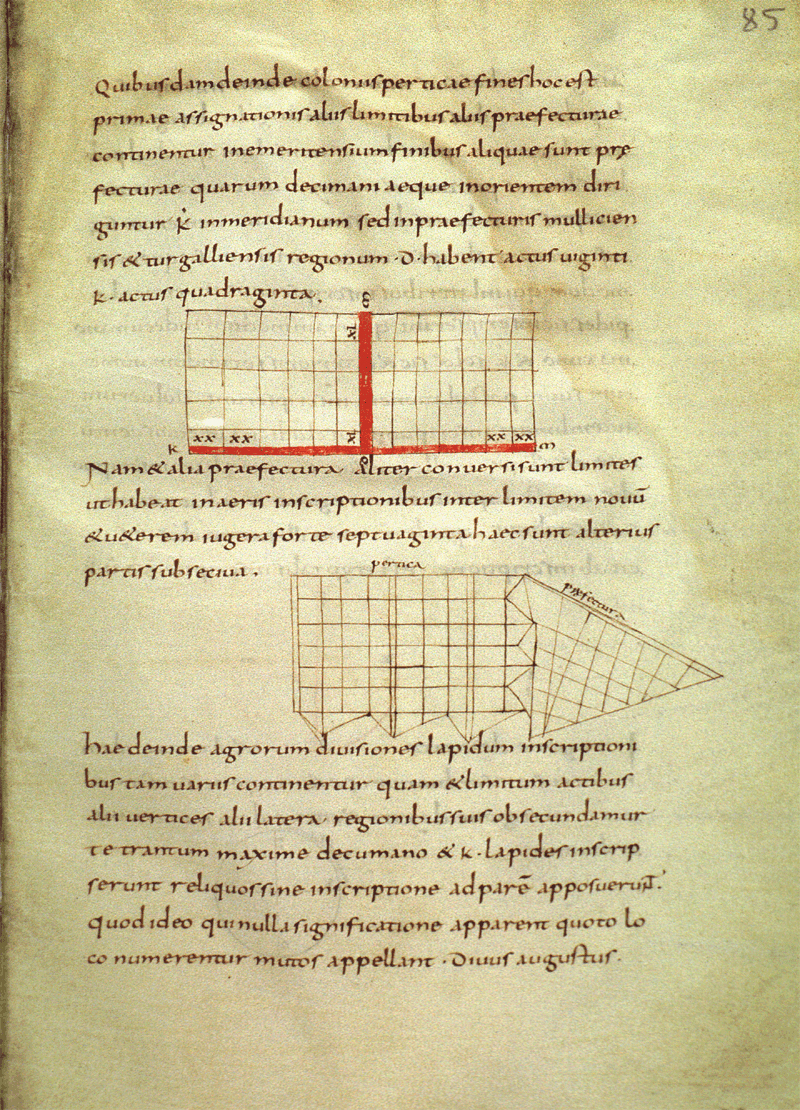 85
Quibusdam deinde coloniis perticae fines hoc est
primae assignationis aliis limitibus aliis praefecturae
continentur in emeritensium finibus aliquae sunt prę
fecturae quarum decimani aeque in orientem diri
guntur k in meridianum sed in praefecturis mullicien
sis & turgalliensis regionum · d · habent actus uiginti
k · actus quadraginta
xl
xx xx xl xx xx
k m
Nam & alia praefectura aliter conuersi sunt limites
ut habeat in aeris inscriptionibus inter limitem nouū
& u&erem iugera forte septuaginta haec sunt alterius
partis subseciua .
pertica
praefectura
hae deinde agrorum diuisiones lapidum inscriptioni
bus tam uariis continentur quam & limitum actibus
alii uertices alii latera regionibus suis obsecundamur
te trantum maxime decumano & k · lapides inscrip
serunt reliquos sine inscriptione ad parē apposuerunt .
quod ideo qui nulla significatione apparent quoto lo
co numerentur mutos appellant · Diuus augustus .